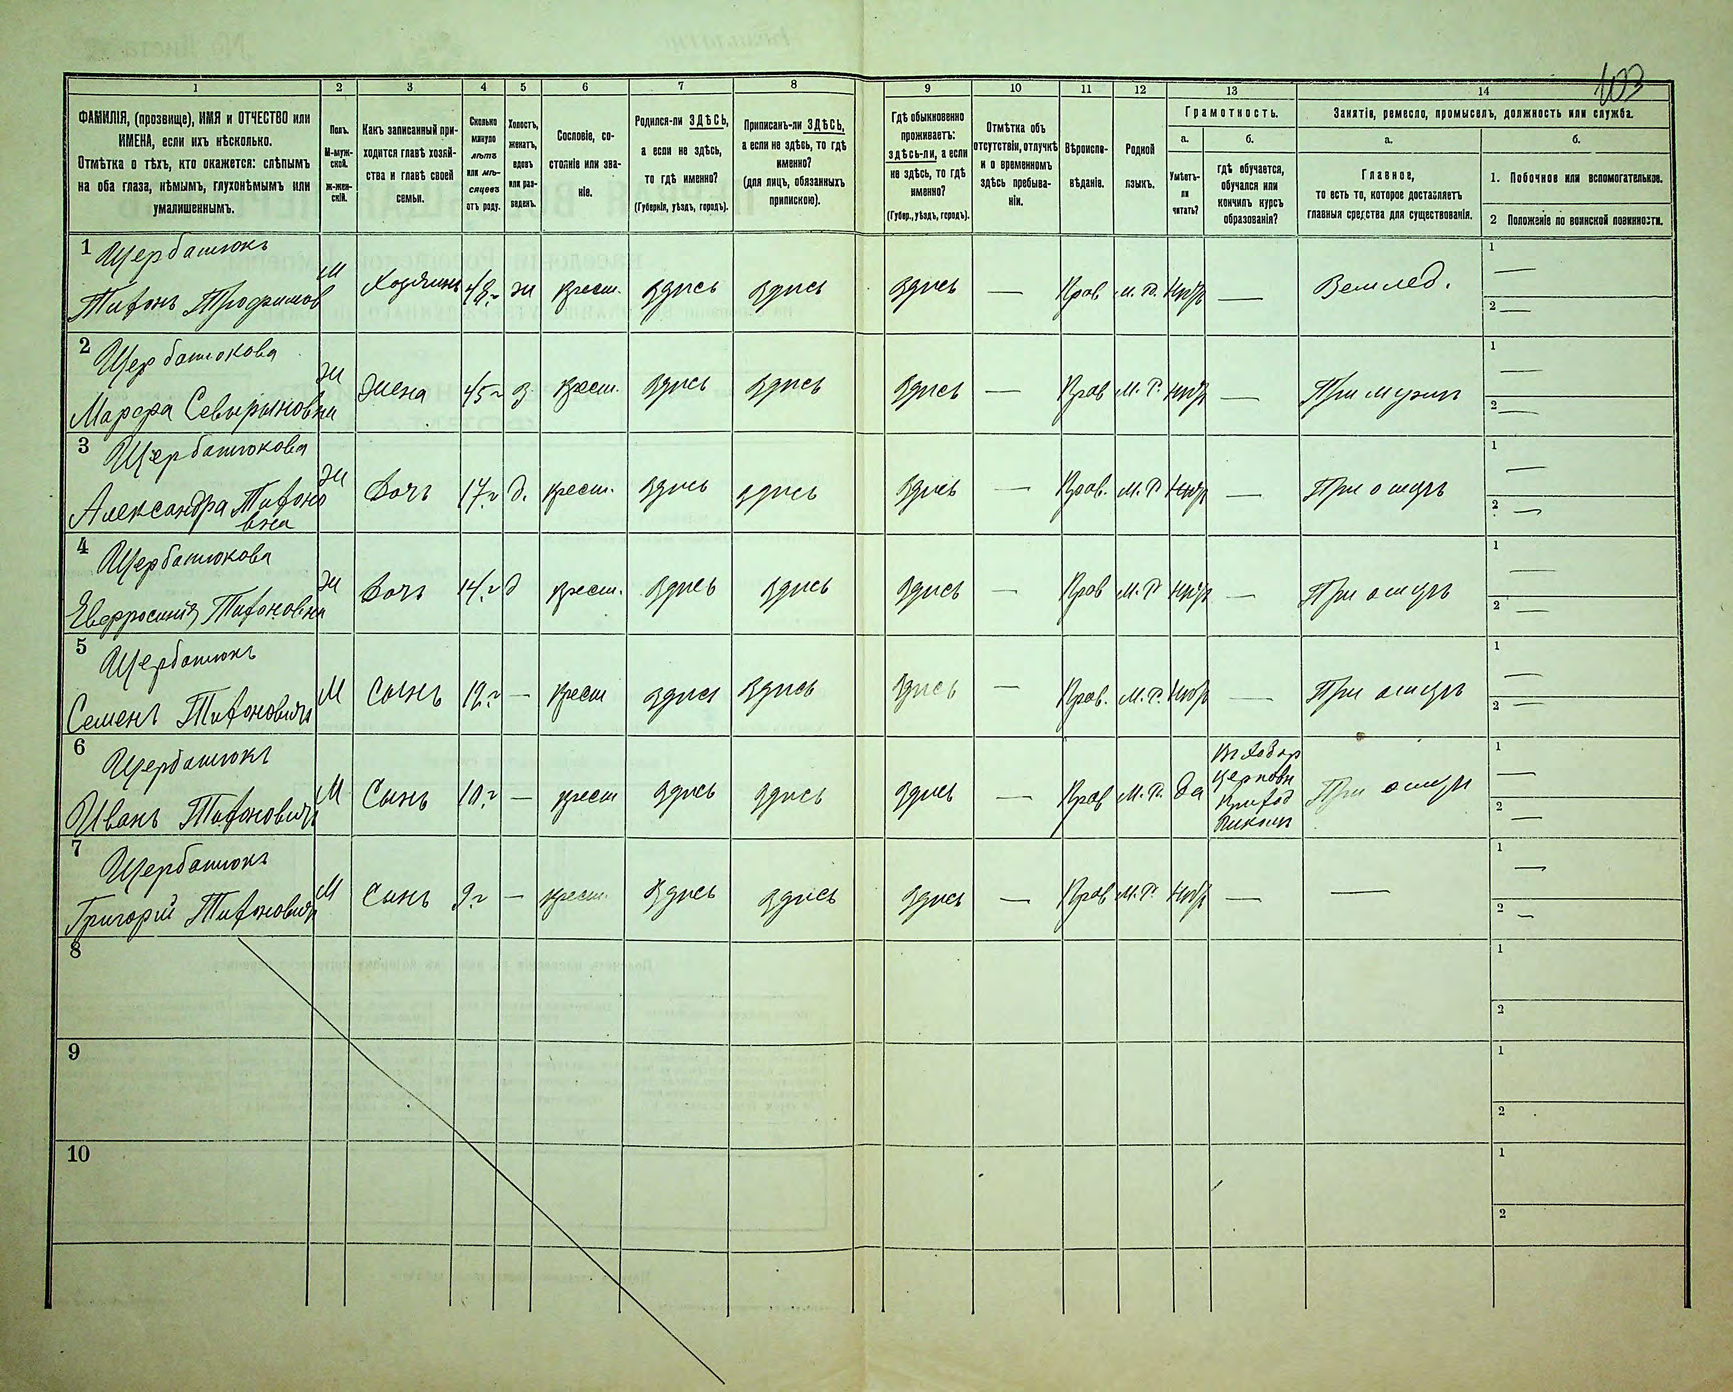 103
1
2
3
4
5
6
7
8
9
10
11
12
13
14
ФАМИЛІЯ, (прозвище), ИМЯ и ОТЧЕСТВО или
ИМЕНА, если ихъ нѣсколько.
Отмѣтка о тѣхъ, кто окажется: слѣпымъ
на оба глаза, нѣмымъ, глухонѣмымъ или
умалишеннымъ.
Полъ.
М-муж-
ской.
ж-жен-
скій.
Какъ записанный при-
ходится главѣ хозяй-
ства и главѣ своей
семьи.
Сколько
минуло
лѣтъ
или мѣ-
сяцевъ
отъ роду.
Холостъ,
женатъ,
вдовъ
или раз-
веденъ.
Сословіе, со-
стояніе или зва-
ніе.
Родился-ли ЗДѢСЬ,
а если не здѣсь,
то гдѣ именно?
(Губернія, уѣздъ, городъ).
Приписанъ-ли ЗДѢСЬ,
а если не здѣсь, то гдѣ
именно?
(для лицъ, обязанныхъ
припискою).
Гдѣ обыкновенно
проживаетъ:
здѣсь-ли, а если
не здѣсь, то гдѣ
именно?
(Губер., уѣздъ, городъ).
Отмѣтка объ
отсутствіи, отлучкѣ
и о временномъ
здѣсь пребыва-
ніи.
Вѣроиспо-
вѣданіе.
Родной
языкъ.
Грамотность.
а.
Умѣетъ-
ли
читать?
б.
гдѣ обучается,
обучался или
кончилъ курсъ
образованія?
Занятіе, ремесло, промыселъ, должность или служба.
а.
Главное,
то есть то, которое доставляетъ
главныя средства для существованія.
б.
1. Побочное или вспомогательное.
2 Положеніе по воинской повинности.
1 Щербатюкъ
Тихонъ Трофимов М Хозяинъ 48 г ж крест. здись здись здись — Прав М. Р. нит — Землед. 1 — 2 —
2 Щербатюкова
Марфа Севырыновна ж жена 45 г з крест. здись здись здись — Прав М. Р. нит — При мужи 1 — 2 —
3 Щербатюкова
Александра Тихоно ж Дочь 17 г д. крест. здись здись здись — Прав. М. Р нит — При отцъ 1 — 2 —
вна
4 Щербатюкова
Евфросинія Тихоновна ж Дочь 14 г д крест. здись здись здись — Прав М. Р нит — При отцъ 1 — 2 —
5 Щербатюкъ
Семенъ Тихоновичъ М Сынъ 12 г — крест здись здись здись — Прав. М. Р. нит — При отцъ 1 — 2 —
6 Щербатюкъ
Иванъ Тихоновичъ М Сынъ 10 г — крест здись здись здись — Прав М. Р. да церковн Приход При отцъ 1 — 2 —
7 Щербатюкъ
Григорій Тихоновичъ М Сынъ 9 г — крест. здись здись здись — Прав М. Р. нит — — 1 — 2 —
8 1 2
9 1 2
10 1 2